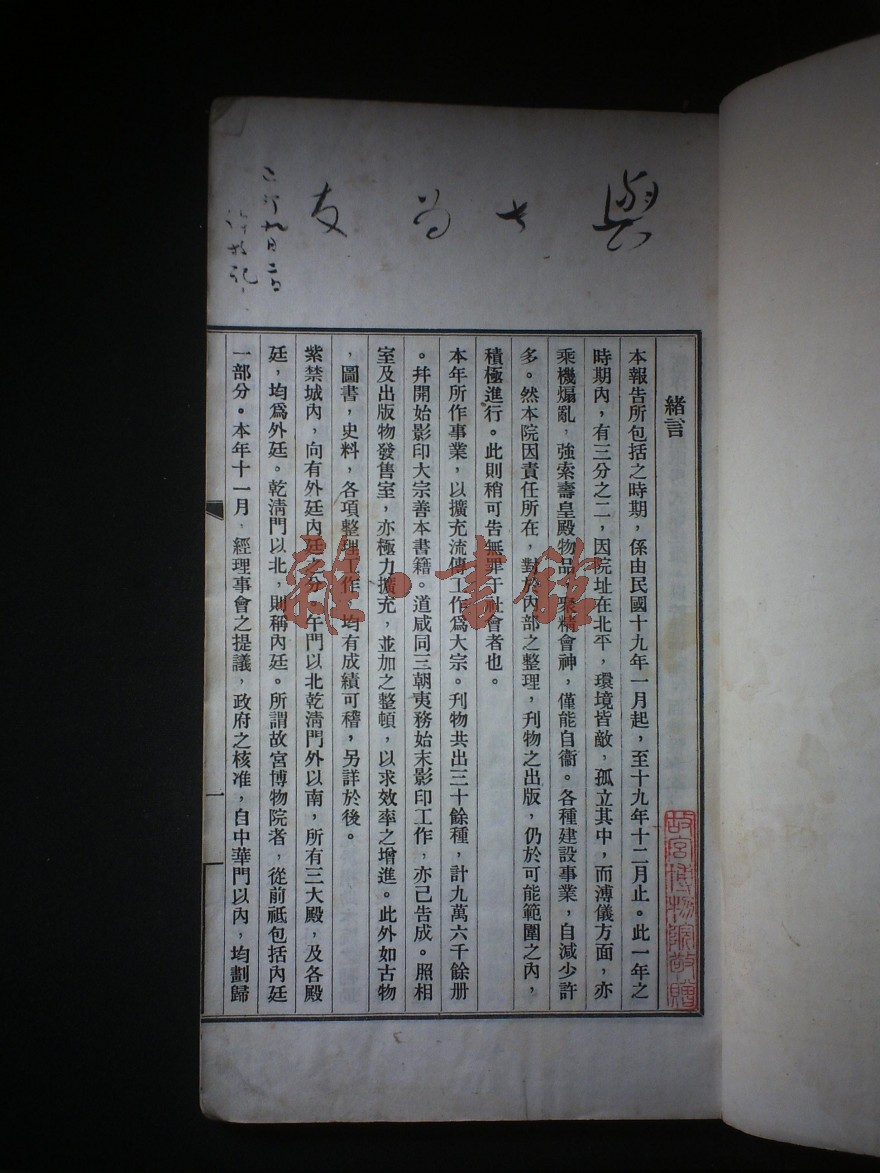 與 為友
緒言
本報告所包括之時期，係由民國十九年一月起，至十九年十二月止。此一年之
時期內，有三分之二，因院址在北平，環境皆敵，孤立其中，而溥儀方面，亦
乘機煽亂，強索壽皇殿物品，聚精會神，僅能自衞。各種建設事業，自減少許
多。然本院因責任所在，對於內部之整理，刋物之出版，仍於可能範圍之內，
積極進行。此則稍可告無罪于社會者也。
本年所作事業，以擴充流傳工作爲大宗。刋物共出三十餘種，計九萬六千餘册
。幷開始影印大宗善本書籍。道咸同三朝夷務始末影印工作，亦已告成。照相
室及出版物發售室，亦極力擴充，並加之整頓，以求效率之增進。此外如古物
，圖書，史料，各項整理工作，均有成績可稽，另詳於後。
紫禁城內，向有外廷內廷之分，午門以北乾淸門外以南，所有三大殿，及各殿
廷，均爲外廷。乾淸門以北，則稱內廷。所謂故宮博物院者，從前祗包括內廷
一部分。本年十一月，經理事會之提議，政府之核准，自中華門以內，均劃歸
一
故宮博物院敬贈
雜·書館